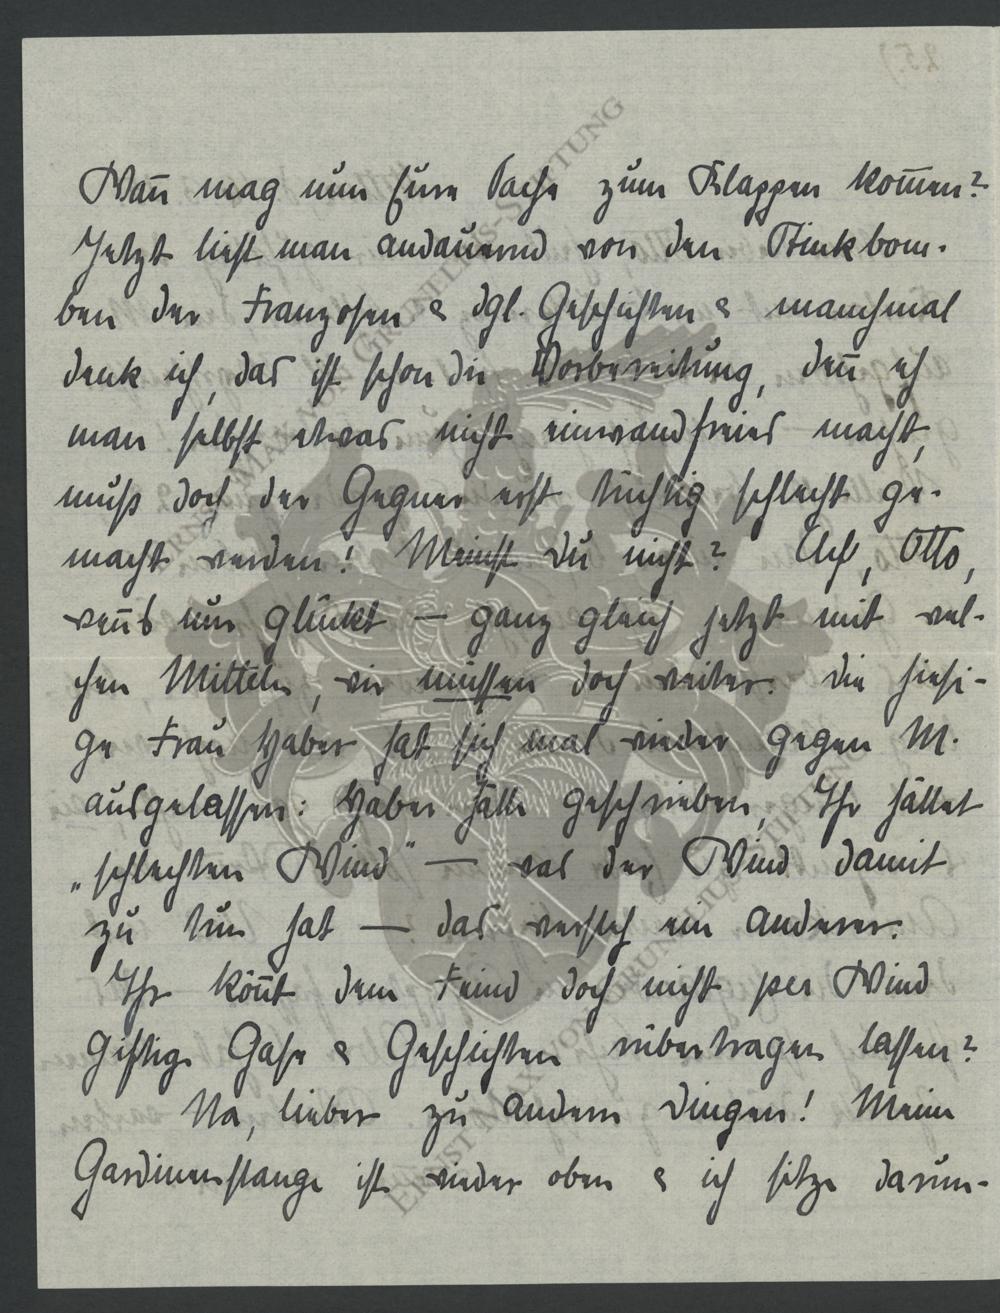 Wan̄ mag nun Eure Sache zum Klappen kom̄en?
Jetzt liest man andauernd von den Stinkbom-
ben der Franzosen & dgl. Geschichten & manchmal
denk ich, das ist schon die Vorbereitung, den̄ eh
man selbst etwas nicht einwandfreies macht,
muß doch der Gegner erst tüchtig schlecht ge-
macht werden! Meinst du nicht? Ach, Otto,
wen̄s nur glückt — ganz gleich jetzt mit wel-
chen Mitteln, wir müssen doch weiter. die hiesi-
ge Frau Haber hat sich mal wieder gegen M.
ausgelassen: Haber hätte geschrieben, Ihr hättet
„schlechten Wind" — was der Wind damit
zu tun hat — das versteh ein anderer.
Ihr kön̄t dem Feind doch nicht per Wind
giftige Gase & Geschichten rübertragen lassen?
Na, lieber zu andern dingen! Meine
Gardinenstange ist wieder oben & ich sitze darun-
ERNST MAX VON GRUNELIUS-STIFTUNG
ERNST MAX VON GRUNELIUS-STIFTUNG